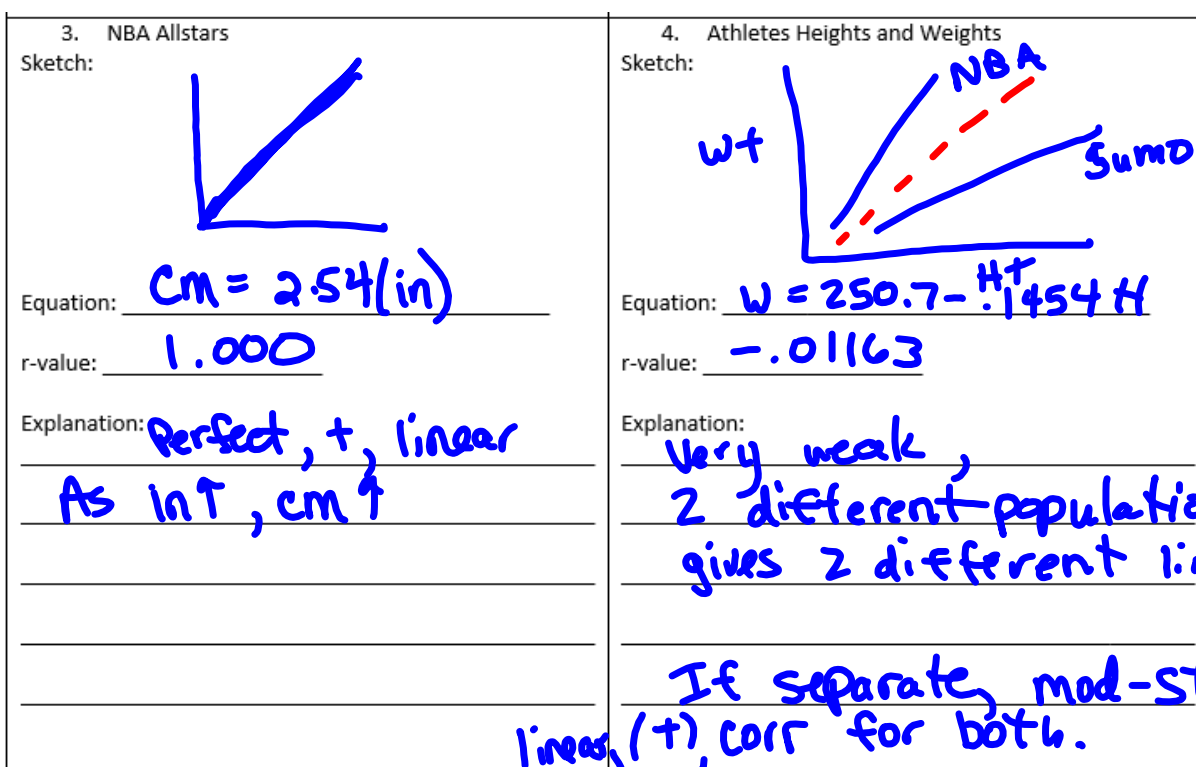 3. NBA Allstars
Sketch:
Equation: Cm = 2.54(in)
r-value: 1.000
Explanation: Perfect, +, linear
As in↑, cm↑
4. Athletes Heights and Weights
Sketch:
NBA
Wt
Sumo
Ht
Equation: W = 250.7 - .1454 H
r-value: -.01163
Explanation:
Very weak,
2 different populatio
gives 2 different li
If separate, mod-st
linear, (+), corr for both.